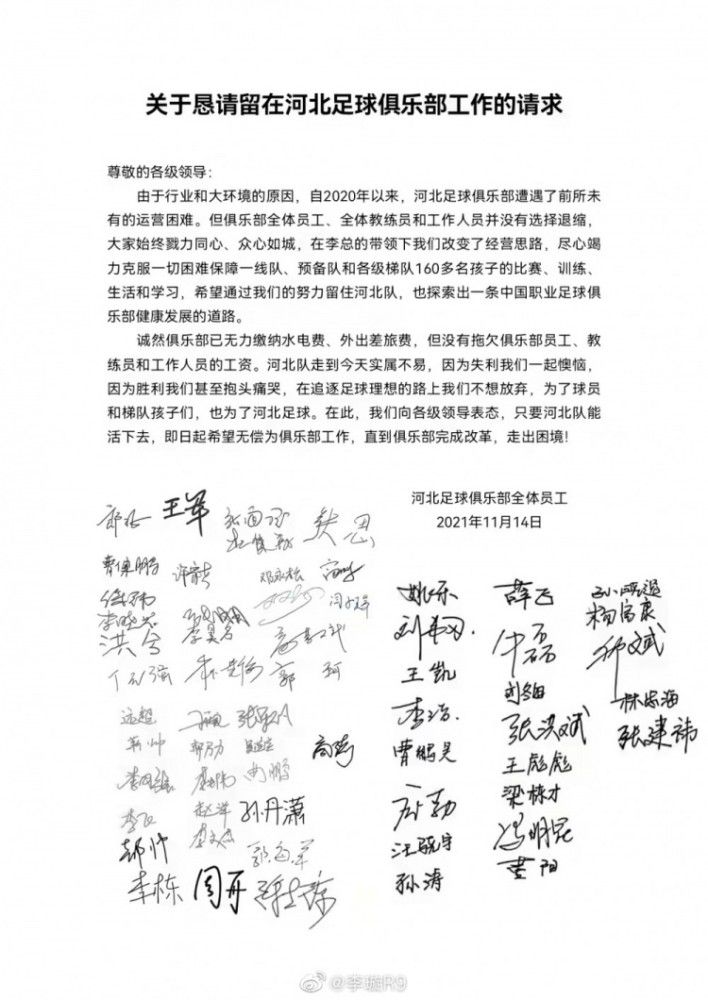 关于恳请留在河北足球俱乐部工作的请求
尊敬的各级领导：
由于行业和大环境的原因，自2020年以来，河北足球俱乐部遭遇了前所未
有的运营困难。但俱乐部全体员工、全体教练员和工作人员并没有选择退缩，
大家始终戮力同心、众心如城，在李总的带领下我们改变了经营思路，尽心竭
力克服一切困难保障一线队、预备队和各级梯队160多名孩子的比赛、训练、
生活和学习，希望通过我们的努力留住河北队，也探索出一条中国职业足球俱
乐部健康发展的道路。
诚然俱乐部已无力缴纳水电费、外出差旅费，但没有拖欠俱乐部员工、教
练员和工作人员的工资。河北队走到今天实属不易，因为失利我们一起懊恼，
因为胜利我们甚至抱头痛哭，在追逐足球理想的路上我们不想放弃，为了球员
和梯队孩子们，也为了河北足球。在此，我们向各级领导表态，只要河北队能
活下去，即日起希望无偿为俱乐部工作，直到俱乐部完成改革，走出困境！
河北足球俱乐部全体员工
2021年11月14日
王军
曹保鹏
洪兮
郭珂
远超
孙丹潇
李栋 周开
姚乐
王凯
李浩
曹鹏昊
孙涛
薛飞
牛磊
张洪斌
王彪彪
梁栋才
冯明昆
黄阳
杨富康
林忠海
张建祎
@李璇R9